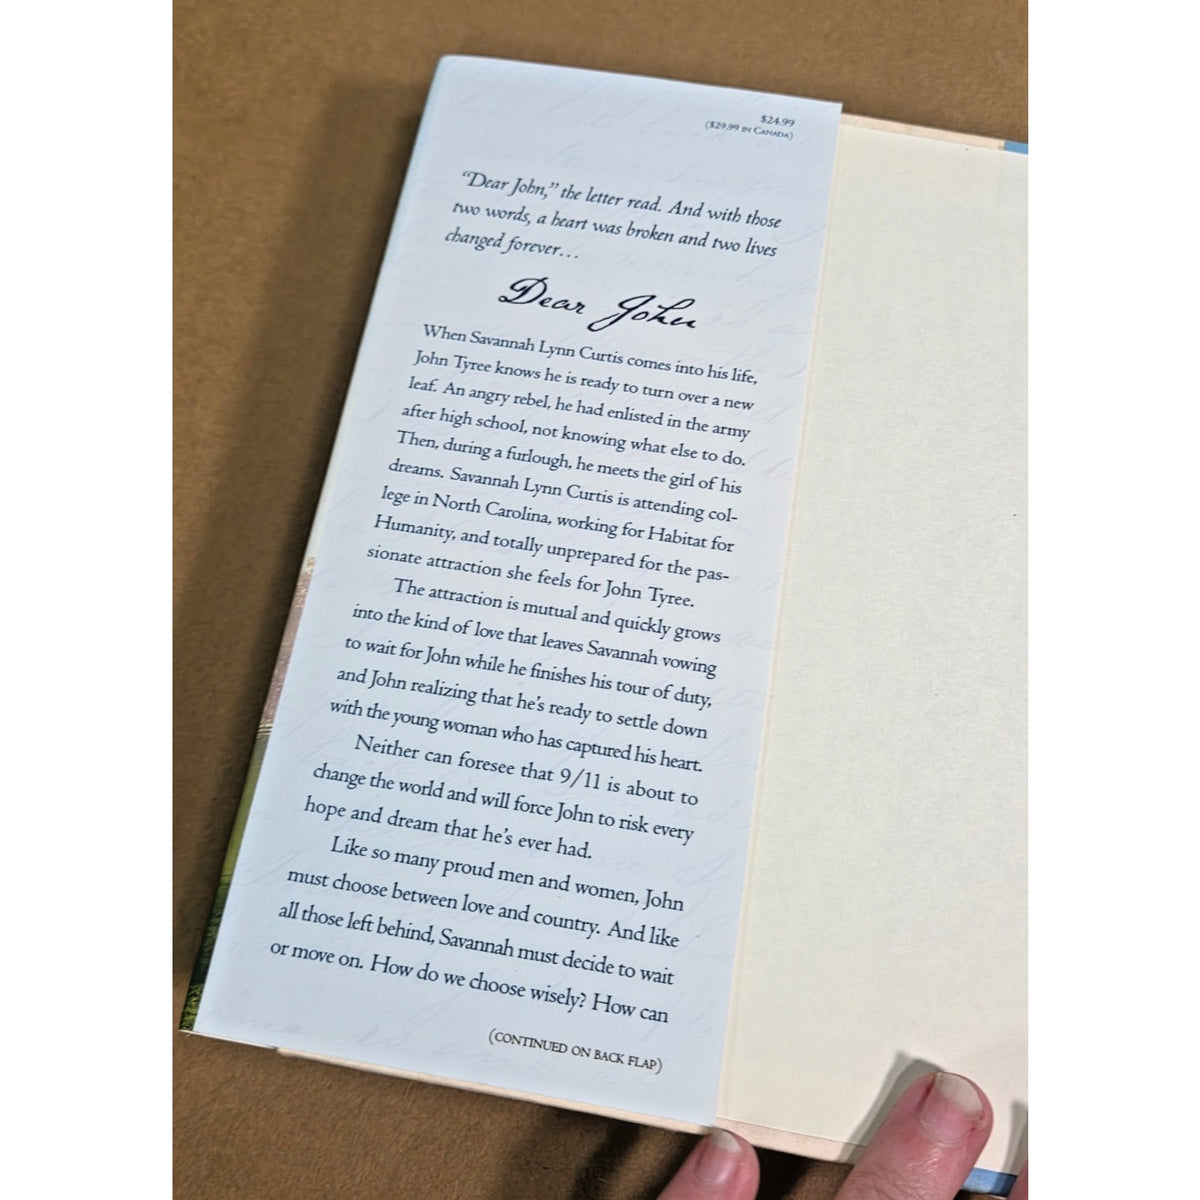 $24.99
($29.99 IN CANADA)
“Dear John,” the letter read. And with those
two words, a heart was broken and two lives
changed forever…
Dear John
When Savannah Lynn Curtis comes into his life,
John Tyree knows he is ready to turn over a new
leaf. An angry rebel, he had enlisted in the army
after high school, not knowing what else to do.
Then, during a furlough, he meets the girl of his
dreams. Savannah Lynn Curtis is attending col-
lege in North Carolina, working for Habitat for
Humanity, and totally unprepared for the pas-
sionate attraction she feels for John Tyree.
The attraction is mutual and quickly grows
into the kind of love that leaves Savannah vowing
to wait for John while he finishes his tour of duty,
and John realizing that he’s ready to settle down
with the young woman who has captured his heart.
Neither can foresee that 9/11 is about to
change the world and will force John to risk every
hope and dream that he’s ever had.
Like so many proud men and women, John
must choose between love and country. And like
all those left behind, Savannah must decide to wait
or move on. How do we choose wisely? How can
(CONTINUED ON BACK FLAP)